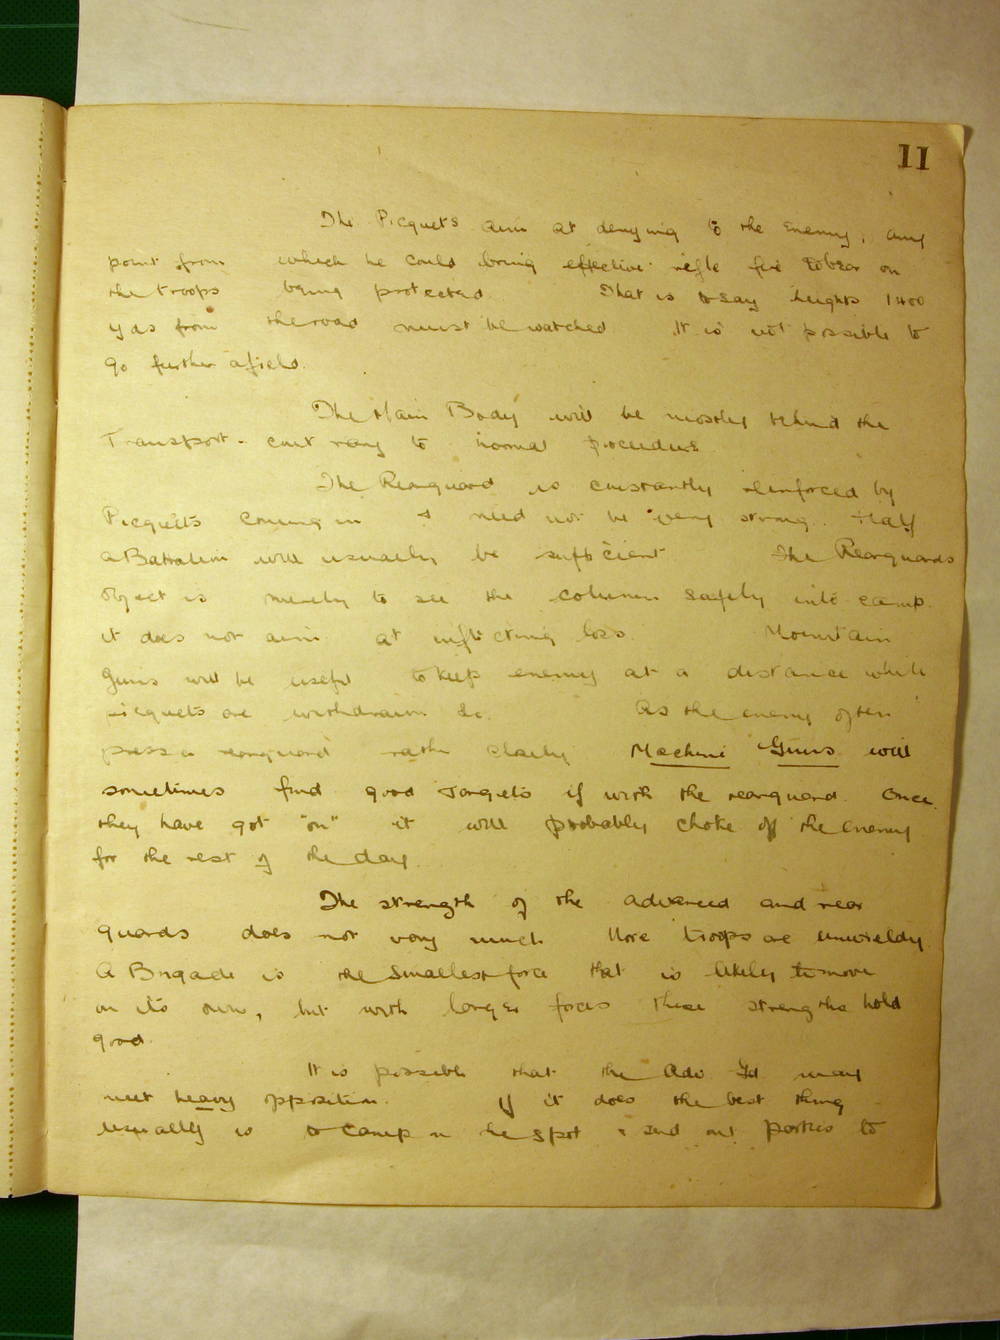 11
The Picquets aim at denying to the Enemy, any
point from which he could bring effective rifle fire to bear on
the troops being protected. That is to say heights 1400
yds from the road must be watched. It is not possible to
go further afield.
The Main Body will be mostly behind the
Transport - contrary to normal procedure.
The Rearguard is constantly reinforced by
Picquets coming in & need not be very strong. Half
a Battalion will usually be sufficient. The Rearguards
object is merely to see the column safely into camp.
it does not aim at inflicting loss. Mountain
Guns will be useful to keep enemy at a distance while
picquets are withdrawn &c. As the enemy often
press a rearguard rather closely Machine Guns will
sometimes find good targets if with the rearguard. Once
they have got "on" it will probably choke off the enemy
for the rest of the day.
The strength of the advanced and rear
guards does not vary much. More troops are unwieldy.
A Brigade is the smallest force that is likely to move
on its own, but with larger forces these strengths hold
good.
It is possible that the Adv Gd may
meet heavy opposition. If it does the best thing
usually is to camp on the spot & send out parties to